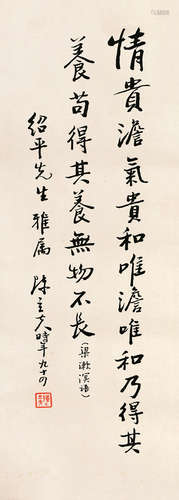 情貴澹氣貴和唯澹唯和乃得其
養苟得其養無物不長(梁漱溟語)
紹平先生雅屬
陳立夫時年九十四